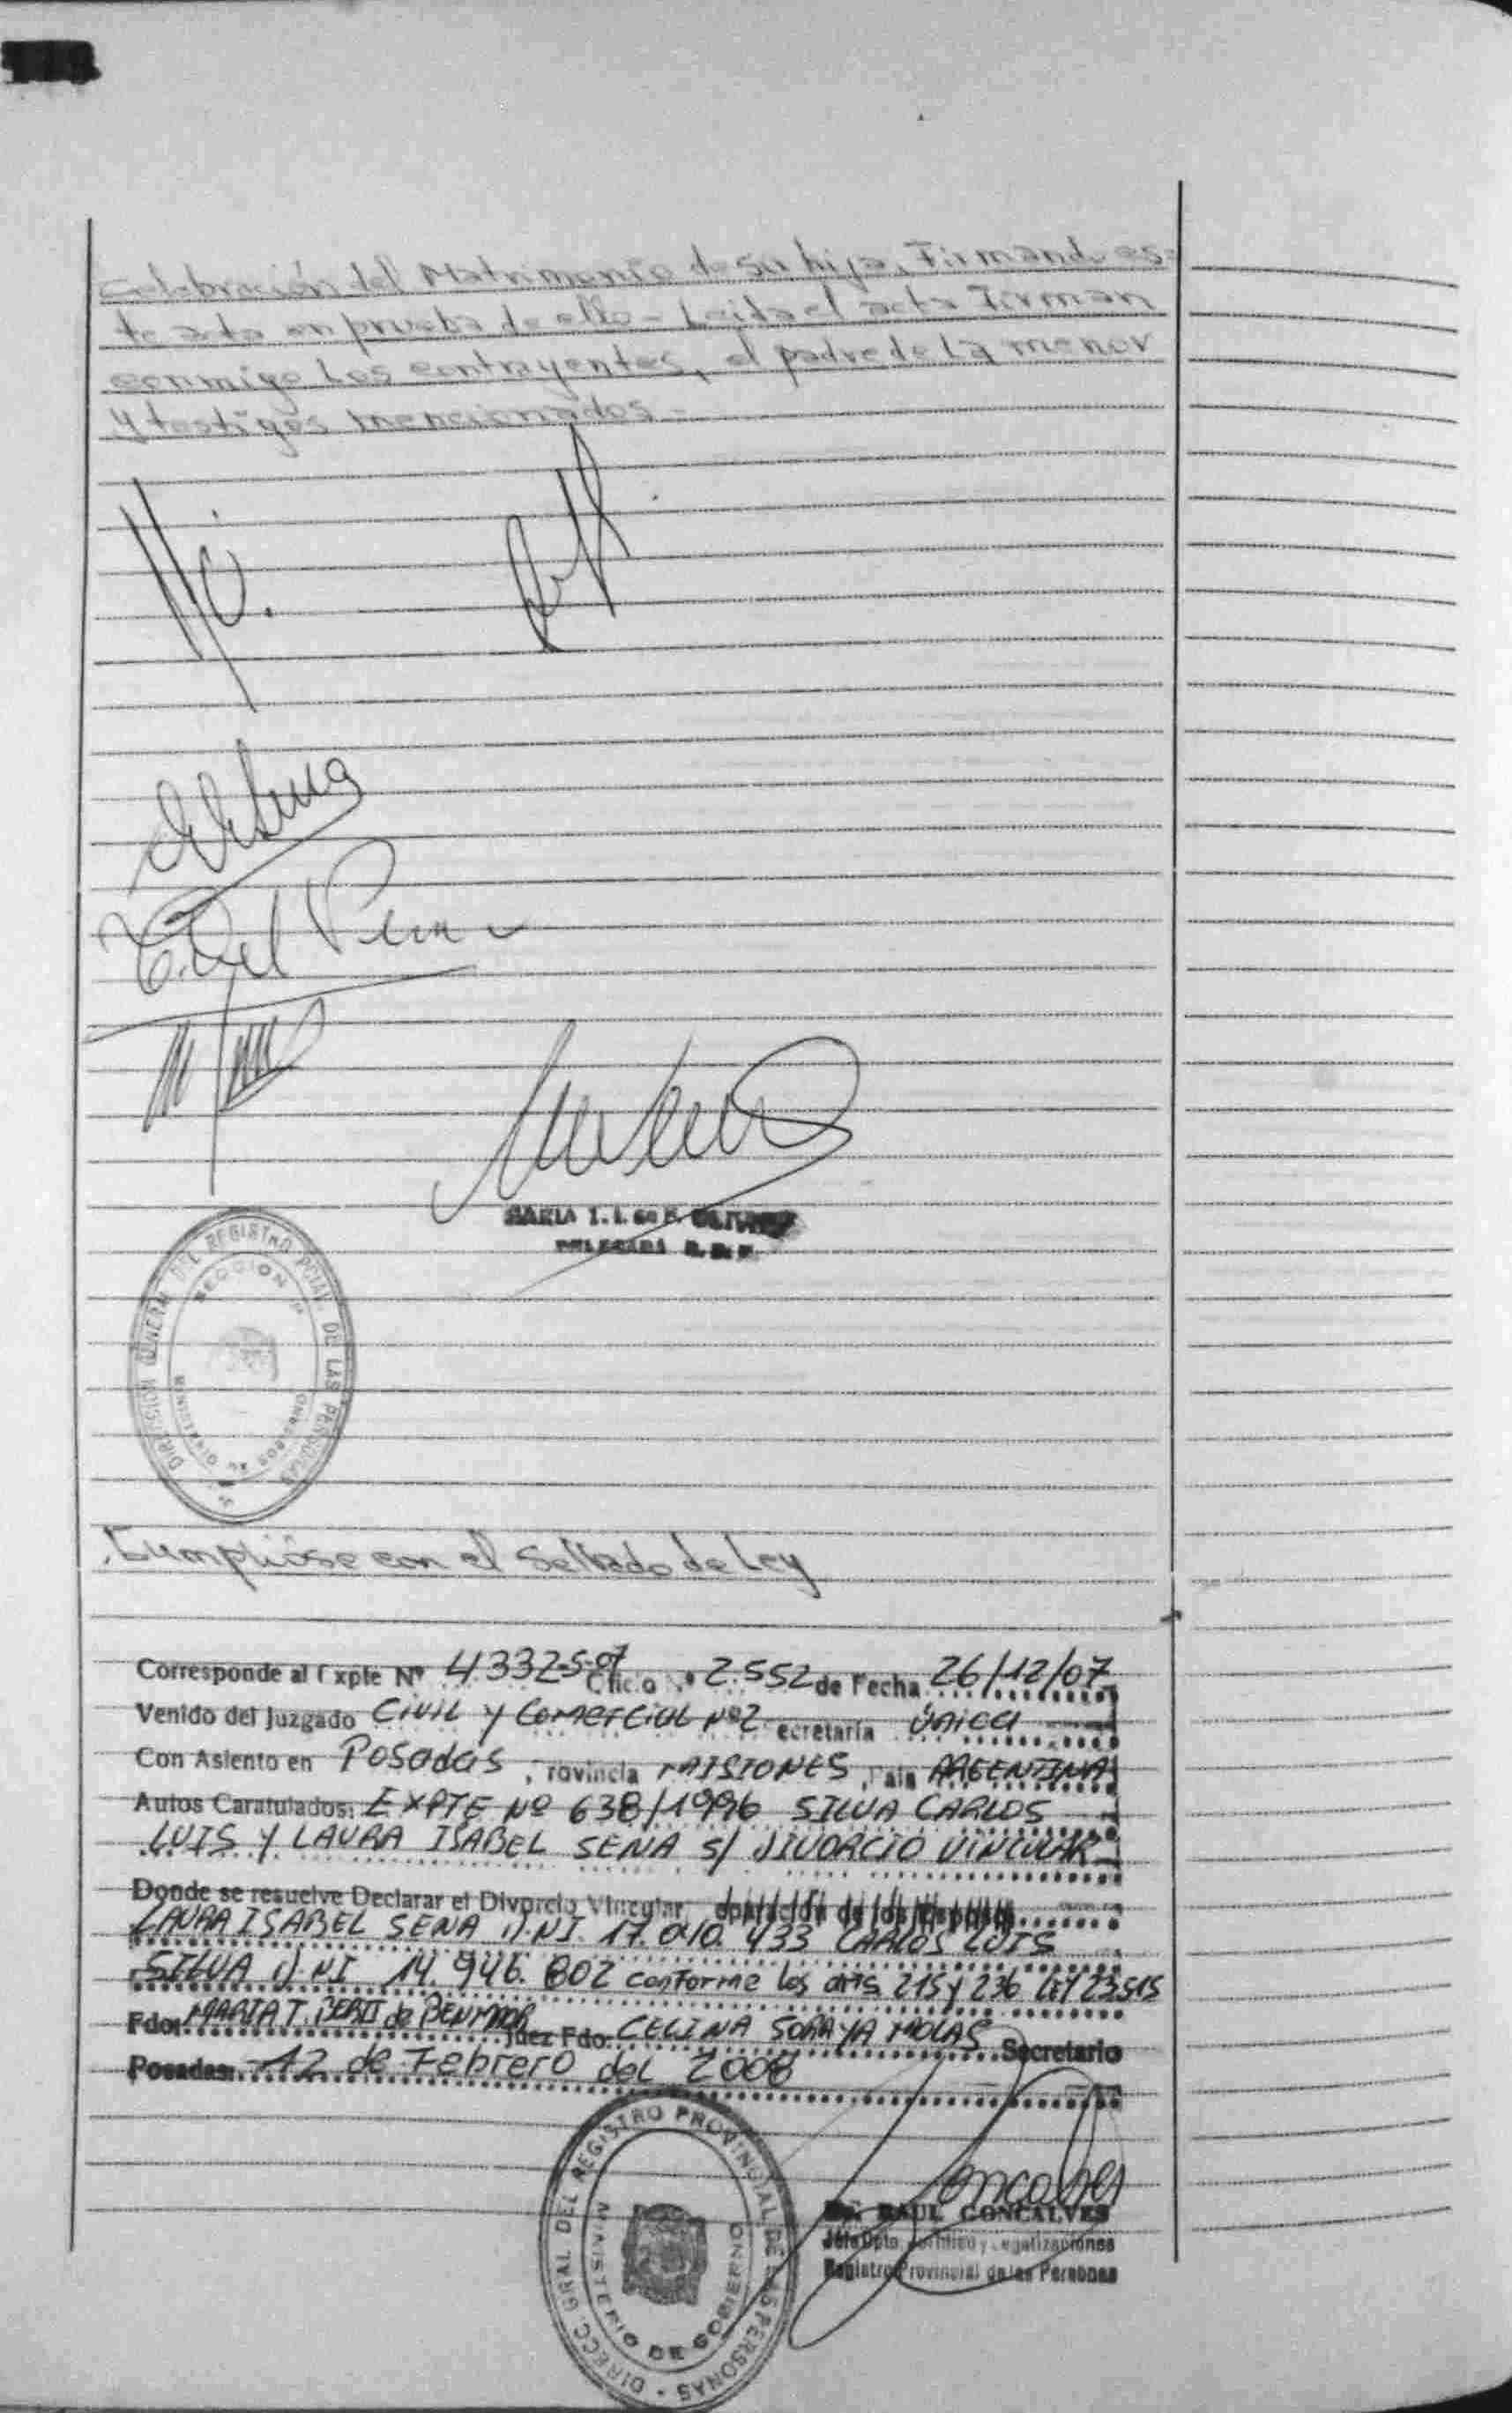 Celebración del Matrimonio de su hija, Firmando es=
te acta en prueba de ello - Leida el acta Firman
conmigo Los contrayentes, el padre de La menor
y testigos mencionados -
MARIA I. I. de
DELEGADA
DIRECCION GENERAL DEL REGISTRO PCIAL. DE LAS PERSONAS
SECCION
Cumplióse con el Sellado de Ley
Corresponde al Expte Nº 4332-S-07 Oficio Nº 2.552 de Fecha 26/12/07
Venido del Juzgado Civil y Comercial Nº2 ecretaría única
Con Asiento en Posadas, rovincia MISIONES, Pais ARGENTINA
Autos Caratulados: EXPTE Nº 638/1996 SILVA CARLOS
LUIS Y LAURA ISABEL SENA S/ DIVORCIO VINCULAR
Donde se resuelve Declarar el Divorcio Vincular
LAURA ISABEL SENA D.NI. 17.010.433 CARLOS LUIS
SILVA D.NI 14.946.802 conforme los arts 215 y 236 LEY 23515
Fdo: MARIA T. de Juez Fdo: CELINA SORAYA MOLAS Secretario
Posadas: 12 de Febrero del 2008
DIRECC. GRAL. DEL REGISTRO PROVINCIAL DE LAS PERSONAS
MINISTERIO DE GOBIERNO
Dr. RAUL GONCALVES
Jefe Dpto. Jurídico y Legalizaciones
Registro Provincial de las Personas